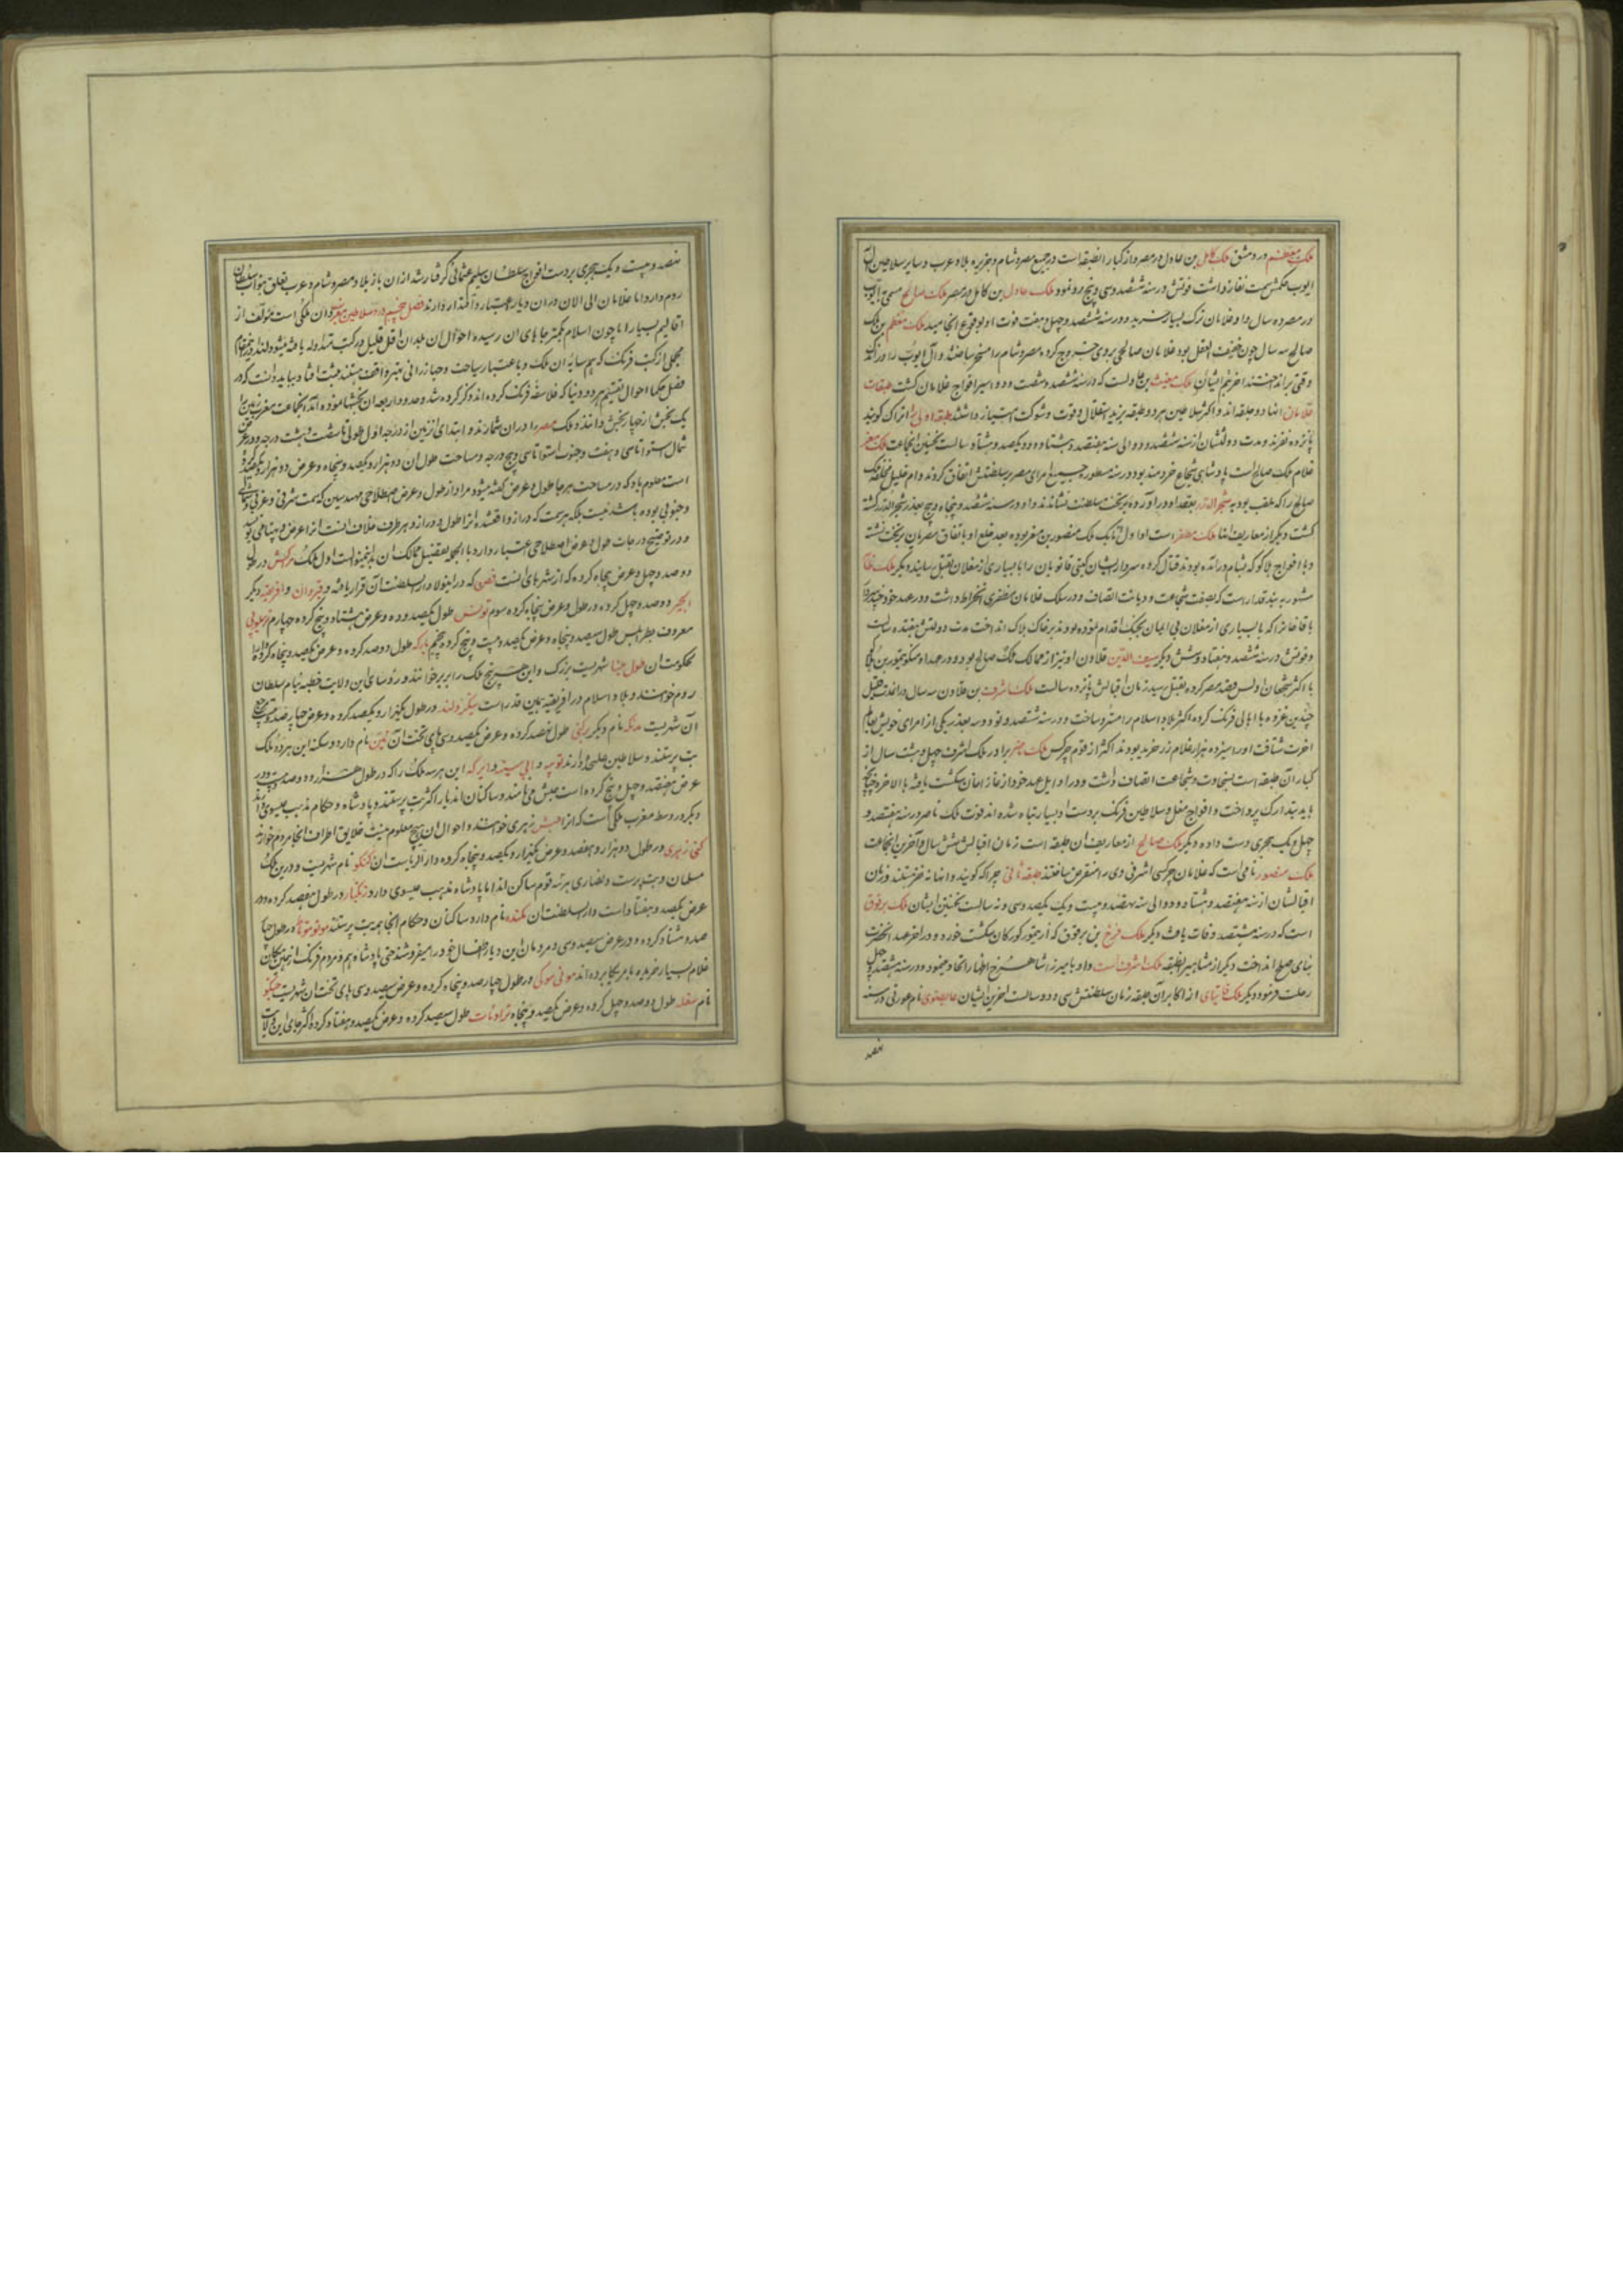 ملک معظم در دمشق ملک کامل بن عادل در مصر و از کبار انطبقه است در جمیع مصر و شام و جزیره بلاد عرب و سایر سلاطین آل
ایوب حکمش سمت نفاز داشت فوتش در سنه ششصد و سی و پنج رو نمود ملک عادل بن کامل در مصر ملک صالح مسمی بایوب
در مصر ده سال داد و غلامان ترک بسیار خرید و در سنه ششصد و چهل و هفت فوت او بوقوع انجامید ملک معظم بن ملک
صالح سه سال چون خفیف العقل بود غلامان صالحی بروی خروج کرده مصر و شام را مسخر ساختند و آل ایوب را در اندک
وقتی برانداختند اخرین ایشان ملک مغیث بن عادلست که در سنه ششصد و شصت و دو اسیر افواج غلامان کشت طبقات
غلامان انها دو طبقه اند و اکثر سلاطین هر دو طبقه بمزید استقلال و قوت و شوکت امتیاز داشتند طبقه اولی اتراک کویند
پانزده نفرند و مدت دولتشان از سنه ششصد و دو الی سنه هفتصد و هشتاد و دو یکصد و هشتاد سالست نخستین انجماعت ملک معز
غلام ملک صالح است پادشاهی شجاع خردمند بود در سنه مسطوره جمیع امرای مصر بر سلطنتش اتفاق کردند و ام خلیل منکوحه ملک
صالح را که ملقب بود به شجر الدر بعقد او در اورده بر تخت سلطنت نشاندند و او در سنه ششصد و پنجاه و پنج بغدر شجر الدر کشته
کشت دیکر از معاریف انها ملک مظفر است او اول اتابک ملک منصور بن معز بوده بعد خلع او باتفاق مصریان بر تخت نشسته
و با افواج هلاکو که بشام در آمده بودند قتال کرده سردار ایشان کیتی قانویان را با بسیاری از مغلان بقتل رسانیده دیکر ملک ظاهر
مشهور به بندقدار است که بصفت شجاعت و دیانت اتصاف و در سلک غلامان مظفری انخراط داشت و در عهد خود چند مرتبه
با قاخانرا که با بسیاری از مغلان بی ایمان بجنک اقدام نموده بودند بر خاک هلاک انداخت مدت دولتش هفتده سالست
و فوتش در سنه ششصد و هفتاد و شش دیکر سیف الدین قلاون او نیز از ممالک ملک صالح بود و در عهد او منکوتیمور بن هلاکو
با اکثر شجعان اولس قصد مصر کرده بقتل رسید زمان اقبالش پانزده سالست ملک اشرف بن قلاون سه سال در انمدت قلیل
چندین غزوه با اهالی فرنک کرده اکثر بلاد اسلام را مسترد ساخت و در سنه ششصد و نود و سه بغدر یکی از امرای خویش بعالم
اخرت شتافت او را سیزده هزار غلام زر خرید بودند اکثر از قوم چرکس ملک ناصر برادر ملک اشرف چهل و هشت سال از
کبار آن طبقه است بسخاوت و شجاعت اتصاف داشت و در اوایل عهد خود از غازانخان شکست یافته بالاخره چنانچه
باید بتدارک پرداخت و افواج مغل و سلاطین فرنک بر دست او بسیار تباه شده اند فوت ملک ناصر در سنه هفتصد و
چهل و یک هجری دست داده دیکر ملک صالح از معاریف ان طبقه است زمان اقبالش شش سال و آخرین انجماعت
ملک منصور نامی است که غلامان چرکسی اشرفی وی را منقرض ساختند طبقه ثانی چراکه کویند و انها نه نفر هستند دوران
اقبالشان از سنه هفتصد و هشتاد و دو الی سنه نهصد و بیست و یک یکصد و سی و نه سالست نخستین ایشان ملک برقوق
است که در سنه هشتصد وفات یافت دیکر ملک فرج بن برقوق که از تیمور کورکان شکست خورد و در اخر عهد انحضرت
بنای صلح انداخت دیکر از مشاهیر انطبقه ملک اشرف است و او با میرزا شاهرخ اظهار اتحاد مینمود و در سنه هشتصد و چهل
رحلت فرمود دیکر ملک قایتبای از اکابر آن طبقه زمان سلطنتش سی و دو سالست اخرین ایشان نام غوری در سنه
نهصد
نهصد و بیست و یک هجری بر دست افواج سلطان سلیم عثمانی کرفتار شد از ان باز بلاد مصر و شام و عرب تعلق بنواب سلطان
روم دارد اما غلامان الی الان در ان دیار اعتبار و اقتدار دارند فصل پنجم در ذکر سلاطین مغرب و ان ملکی است مولف از
اقالیم بسیار اما چون اسلام بکمتر جاهای ان رسیده احوال ان بلدان اقل قلیل در کتب متداوله یافته میشود لهذا در اینمقام
مجملی از کتب فرنک که همسایه ان ملک و باعتبار سیاحت و جهازرانی نیز واقف هستند ثبت افتاد بباید دانست که در
فصل حکما احوال تقسیم هر دو دنیا که فلاسفه فرنک کرده اند ذکر کرده شد و حدود اربعه ان بخشها نموده آمد انجماعت مغرب زمین را
یک بخش از چهار بخش دانند و ملک مصر را در ان شمارند و ابتدای انزمین از درجه اول طولی تا شصت و هشت درجه و در عرض
شمال استوا تا سی و هفت و جنوب استوا تا سی و پنج درجه و مساحت طول ان دو هزار و یکصد و پنجاه و عرض دو هزار و یکصد کروه
است معلوم باد که در مساحت هر جا طول و عرض کفته میشود مراد از طول و عرض اصطلاحی مهندسین که سمت شرقی و غربی و شمالی
و جنوبی بوده باشد نیست بلکه هر سمت که دراز واقعشده انرا طول و دراز و هر طرف خلاف انست انرا عرض و پهنا می نویسد
و در توضیح درجات طول و عرض اصطلاحی اعتبار دارد بالجمله تفصیل ممالک ان بدینمنوالست اول ملک مراکش در طول
دوصد و چهل و عرض پنجاه کروه که از شهرهای انست فص که در اینولا دار السلطنت آن قرار یافته و قیروان و افریقیه دیکر
الجیر دوصد و چهل کروه در طول و عرض پنجاه کروه سوم تونس طول یکصد و ده و عرض هشتاد و پنج کروه چهارم تریپولی
معروف بطرابلس طول سیصد و پنجاه و عرض یکصد و بیست و پنج کروه پنجم بارکه طول دوصد کروه و عرض یکصد و پنجاه کروه
شهریست بزرک و این هر پنج ملک را بربر خوانند و رؤسای این ولایت خطبه بنام سلطان
روم خوانند و بلاد اسلام در افریقیه همین قدر است دیکر در طول یکهزار و یکصد کروه و عرض چهار صد
آن شهریست نام دیکر طول نهصد کروه و عرض یکصد و سی پای تخت آن نام دارد و سکنه این هر دو ملک
بت پرستند و سلاطین علیحده دارند نوبیه و ابی سینه و ابرکه این هر سه ملک را که در طول هزار و دوصد و
عرض هفتصد و چهل و پنج کروه است حبش می نامند و ساکنان اندیار اکثر بت پرستند و پادشاه و حکام مذهب عیسوی دارند
دیکر در وسط مغرب ملکی است که انرا حبش زیری خوانند و احوال ان هیچ معلوم نیست خلایق اطراف انجا مردم خوارند
در طول دو هزار و هفصد و عرض یکهزار و یکصد و پنجاه کروه دار الریاست ان کنکو نام شهریست و درین ملک
مسلمان و بت پرست و نصاری هر سه قوم ساکن اند اما پادشاه مذهب عیسوی دارد زنکبار در طول هفصد کروه و در
عرض یکصد و هفتاد است دار السلطنت ان نام دارد ساکنان و حکام انجا همه بت پرستند در طول چهار
صد و هشتاد کروه و در عرض سیصد و سی و مردمان این دیار اطفال خود را میفروشند حتی پادشاه هم و مردم فرنک از همین مکان
غلام بسیار خریده بامریکا برده اند در طول چهار صد و پنجاه کروه و عرض سیصد و سی پای تخت ان شهریست
نام سفله طول دوصد و چهل کروه و عرض یکصد و پنجاه طول سیصد کروه و عرض یکصد و هفتاد کروه اکثر جای این ولایت